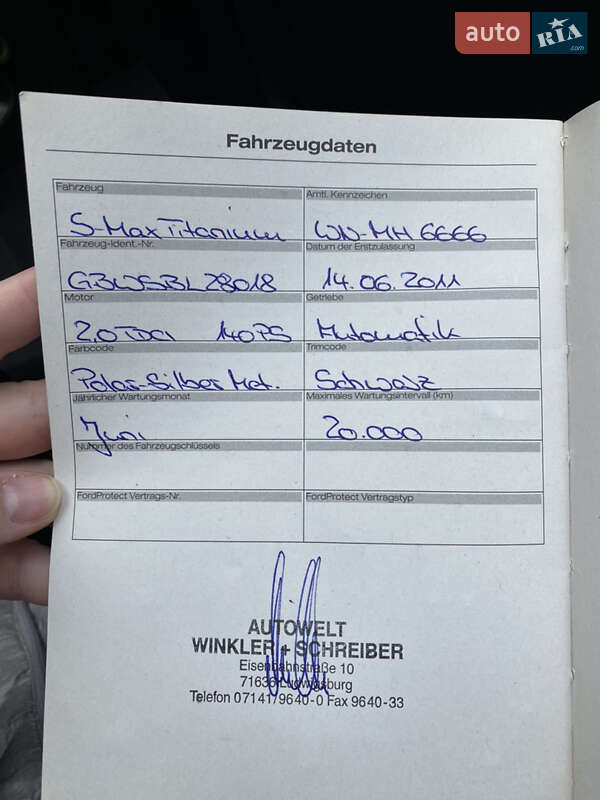 auto RIA .com
Fahrzeugdaten
Fahrzeug Amtl. Kennzeichen
S-Max Titanium WN-MH 6666
Fahrzeug-Ident.-Nr. Datum der Erstzulassung
GBWSBL28018 14.06.2011
Motor Getriebe
2,0 TDCi 140PS Automatik
Farbcode Trimcode
Polar-Silber Met. Schwarz
Jährlicher Wartungsmonat Maximales Wartungsintervall (km)
Juni 20.000
Nummer des Fahrzeugschlüssels
FordProtect Vertrags-Nr. FordProtect Vertragstyp
AUTOWELT
WINKLER + SCHREIBER
Eisenbahnstraße 10
71636 Ludwigsburg
Telefon 07141/9640-0 Fax 9640-33